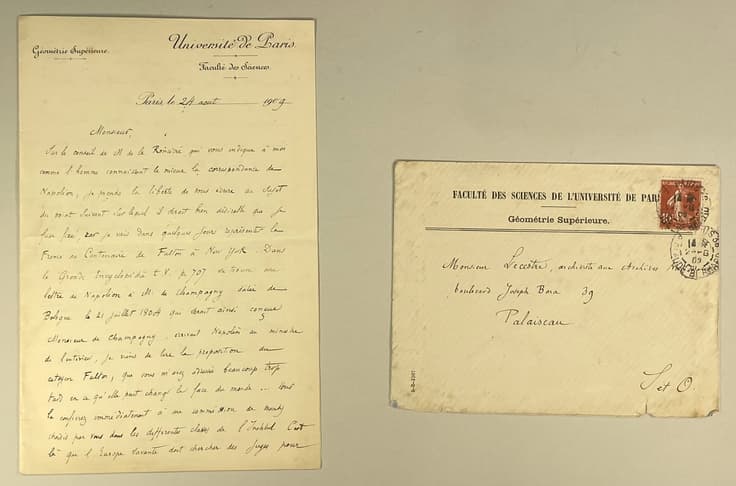 Géométrie Supérieure.
Université de Paris.
Faculté des Sciences.
Paris le 24 aout 1909
Monsieur,
Sur le conseil de M de la Roncière qui vous indique à moi
comme l'homme connaissant le mieux la correspondance de
Napoléon, je prends la liberté de vous écrire au sujet
du point suivant sur lequel il serait bien désirable que je
fusse fixé, car je vais dans quelques jours représenter la
France au Centenaire de Fulton à New York. Dans
la Grande Encyclopédie t. V p. 707 se trouve une
lettre de Napoléon à M. de Champagny datée de
Boulogne le 21 juillet 1804 qui serait ainsi conçue
Monsieur de Champagny, écrivait Napoléon au ministre
de l'intérieur, je viens de lire la proposition du
citoyen Fulton, que vous m'avez adressée beaucoup trop
tard en ce qu'elle peut changer la face du monde ... vous
la confierez immédiatement à une commission de membres
choisis par vous dans les différentes classes de l'Institut C'est
là que l'Europe savante doit chercher des juges pour
FACULTÉ DES SCIENCES DE L'UNIVERSITÉ DE PARI
Géométrie Supérieure.
Monsieur Lecestre, archiviste aux Archives
boulevard Joseph Bara 39
Palaiseau
S et O.